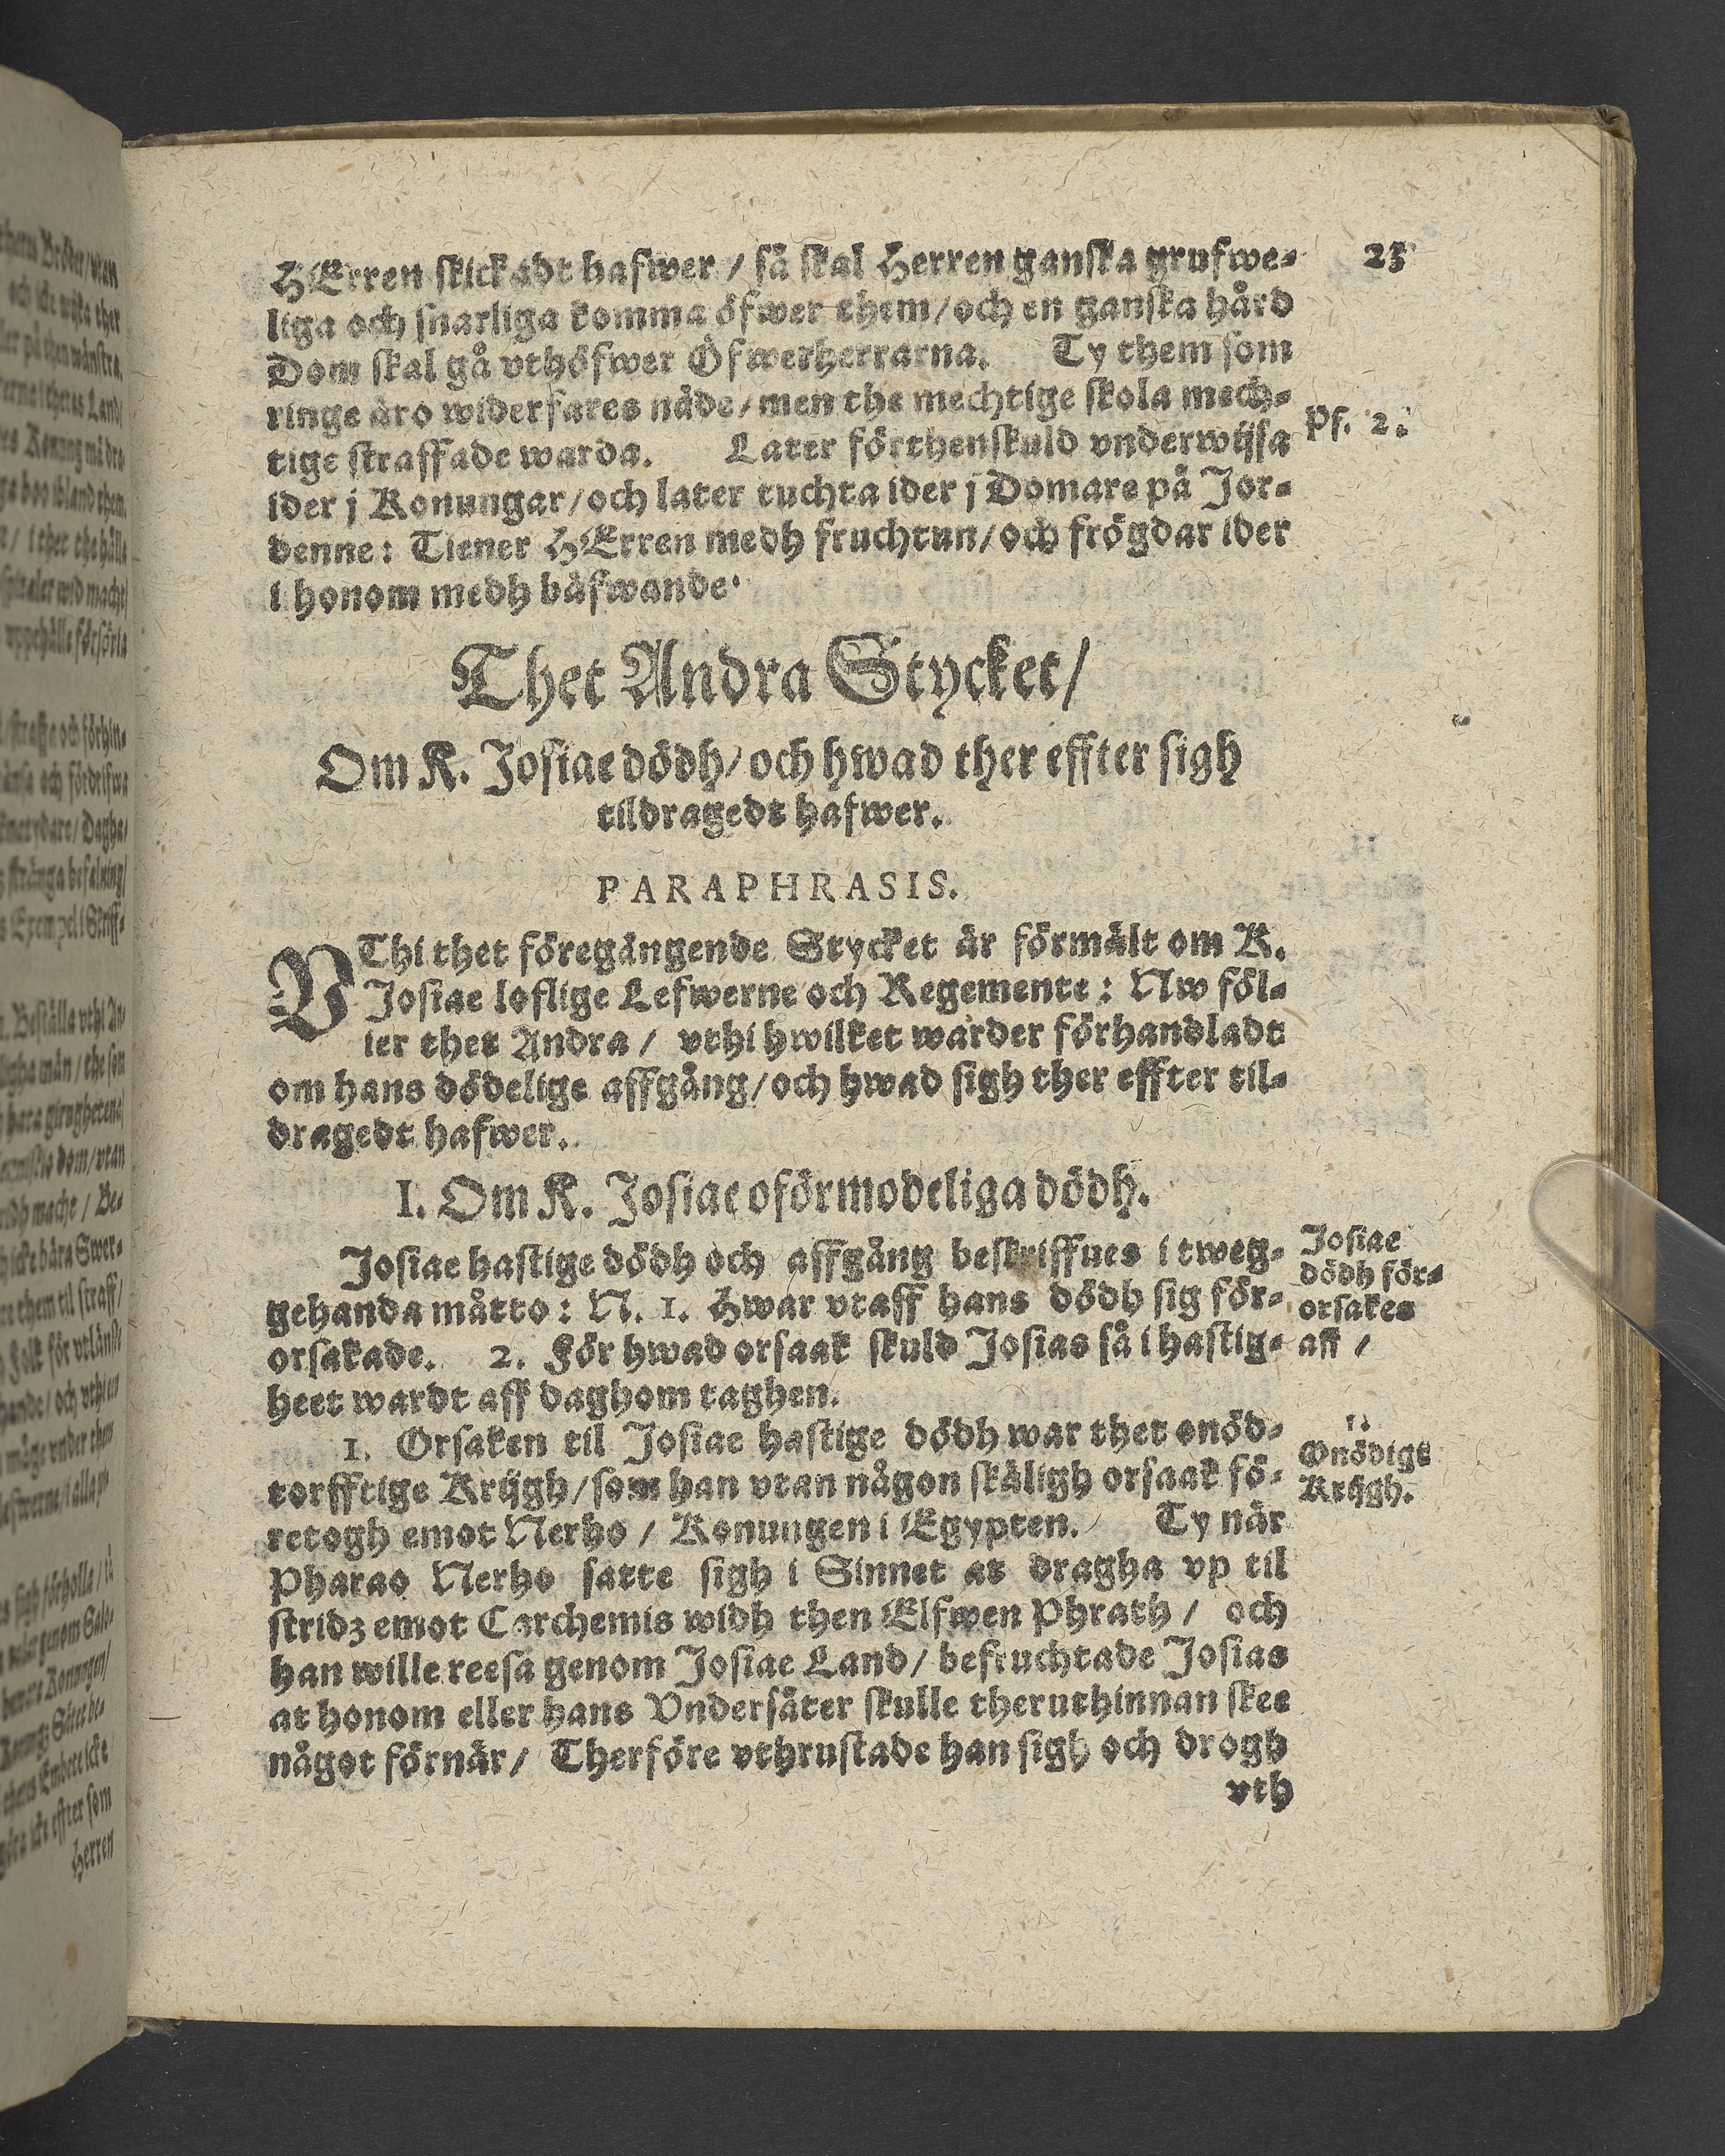 23
HErren skickadt hafwer / så skal Herren ganska grufwe-
liga och snarliga komma öfwer them/och en ganska hård
Dom skal gå vthöfwer Öfwerherrarna. Ty them som
ringe äro widerfares nåde/men the mechtige skola mech-
tige straffade warda. Later förthenskuld vnderwijsa
Ps. 2.
ider j Konungar/och later tuchta ider j Domare på Jor-
denne: Tiener HErren medh fruchtun/och frögdar ider
i honom medh bäfwande.
Thet Andra Stycket/
Om K. Josiae dödh/och hwad ther effter sigh
tildragedt hafwer.
PARAPHRASIS.
VThi thet föregångende Stycket är förmält om K.
Josiae loflige Lefwerne och Regemente: Nw föl-
ier thet Andra / vthi hwilket warder förhandladt
om hans dödelige affgång/och hwad sigh ther effter til-
dragedt hafwer.
I. Om K. Josiae oförmodeliga dödh.
Josiae hastige dödh och affgång beskriffues i tweg-
gehanda måtto: N. 1. Hwar vtaff hans dödh sig för-
orsakade. 2. För hwad orsaak skuld Josias så i hastig-
heet wardt aff daghom taghen.
Josiae
dödh för-
orsakes
aff /
1. Orsaken til Josiae hastige dödh war thet onöd-
torfftige Krijgh/som han vtan någon skäligh orsaak fö-
retogh emot Nerho / Konungen i Egypten. Ty när
Pharao Nerho satte sigh i Sinnet at dragha vp til
stridz emot Carchemis widh then Elfwen Phrath / och
han wille reesa genom Josiae Land/ befruchtade Josias
at honom eller hans Vndersåter skulle theruthinnan skee
något förnär/ Therföre vthrustade han sigh och drogh
1.
Onödigt
Krijgh.
vth